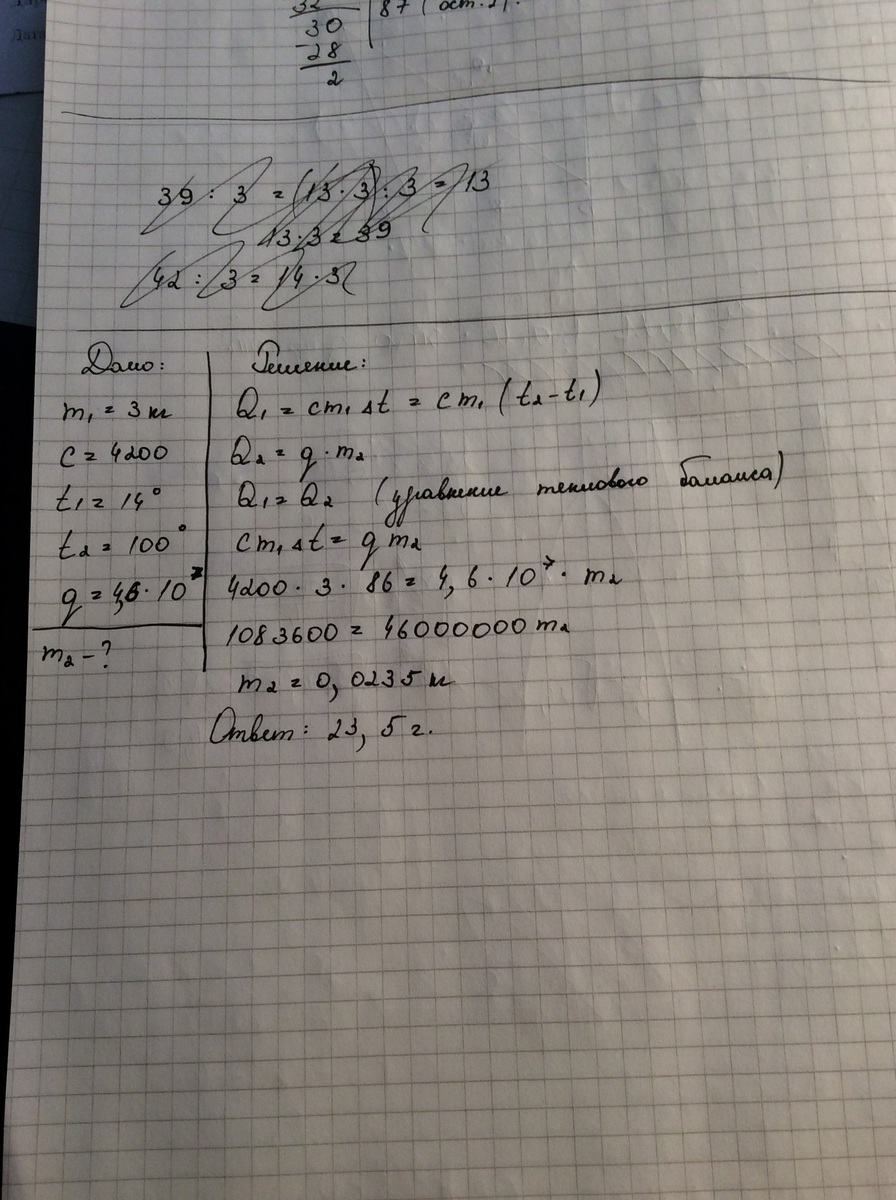 32
30
87 (ост. 2).
-28
2
39 : 3 = (13 · 3) : 3 = 13
13 · 3 = 39
42 : 3 = 14 · 3
Дано:
m₁ = 3 кг
c = 4200
t₁ = 14°
t₂ = 100°
q = 4,6 · 10⁷
m₂ - ?
Решение:
Q₁ = cm₁ Δt = cm₁ (t₂ - t₁)
Q₂ = q · m₂
Q₁ = Q₂ (уравнение теплового баланса)
cm₁ Δt = q m₂
4200 · 3 · 86 = 4,6 · 10⁷ · m₂
1083600 = 46000000 m₂
m₂ = 0,0235 кг
Ответ: 23,5 г.